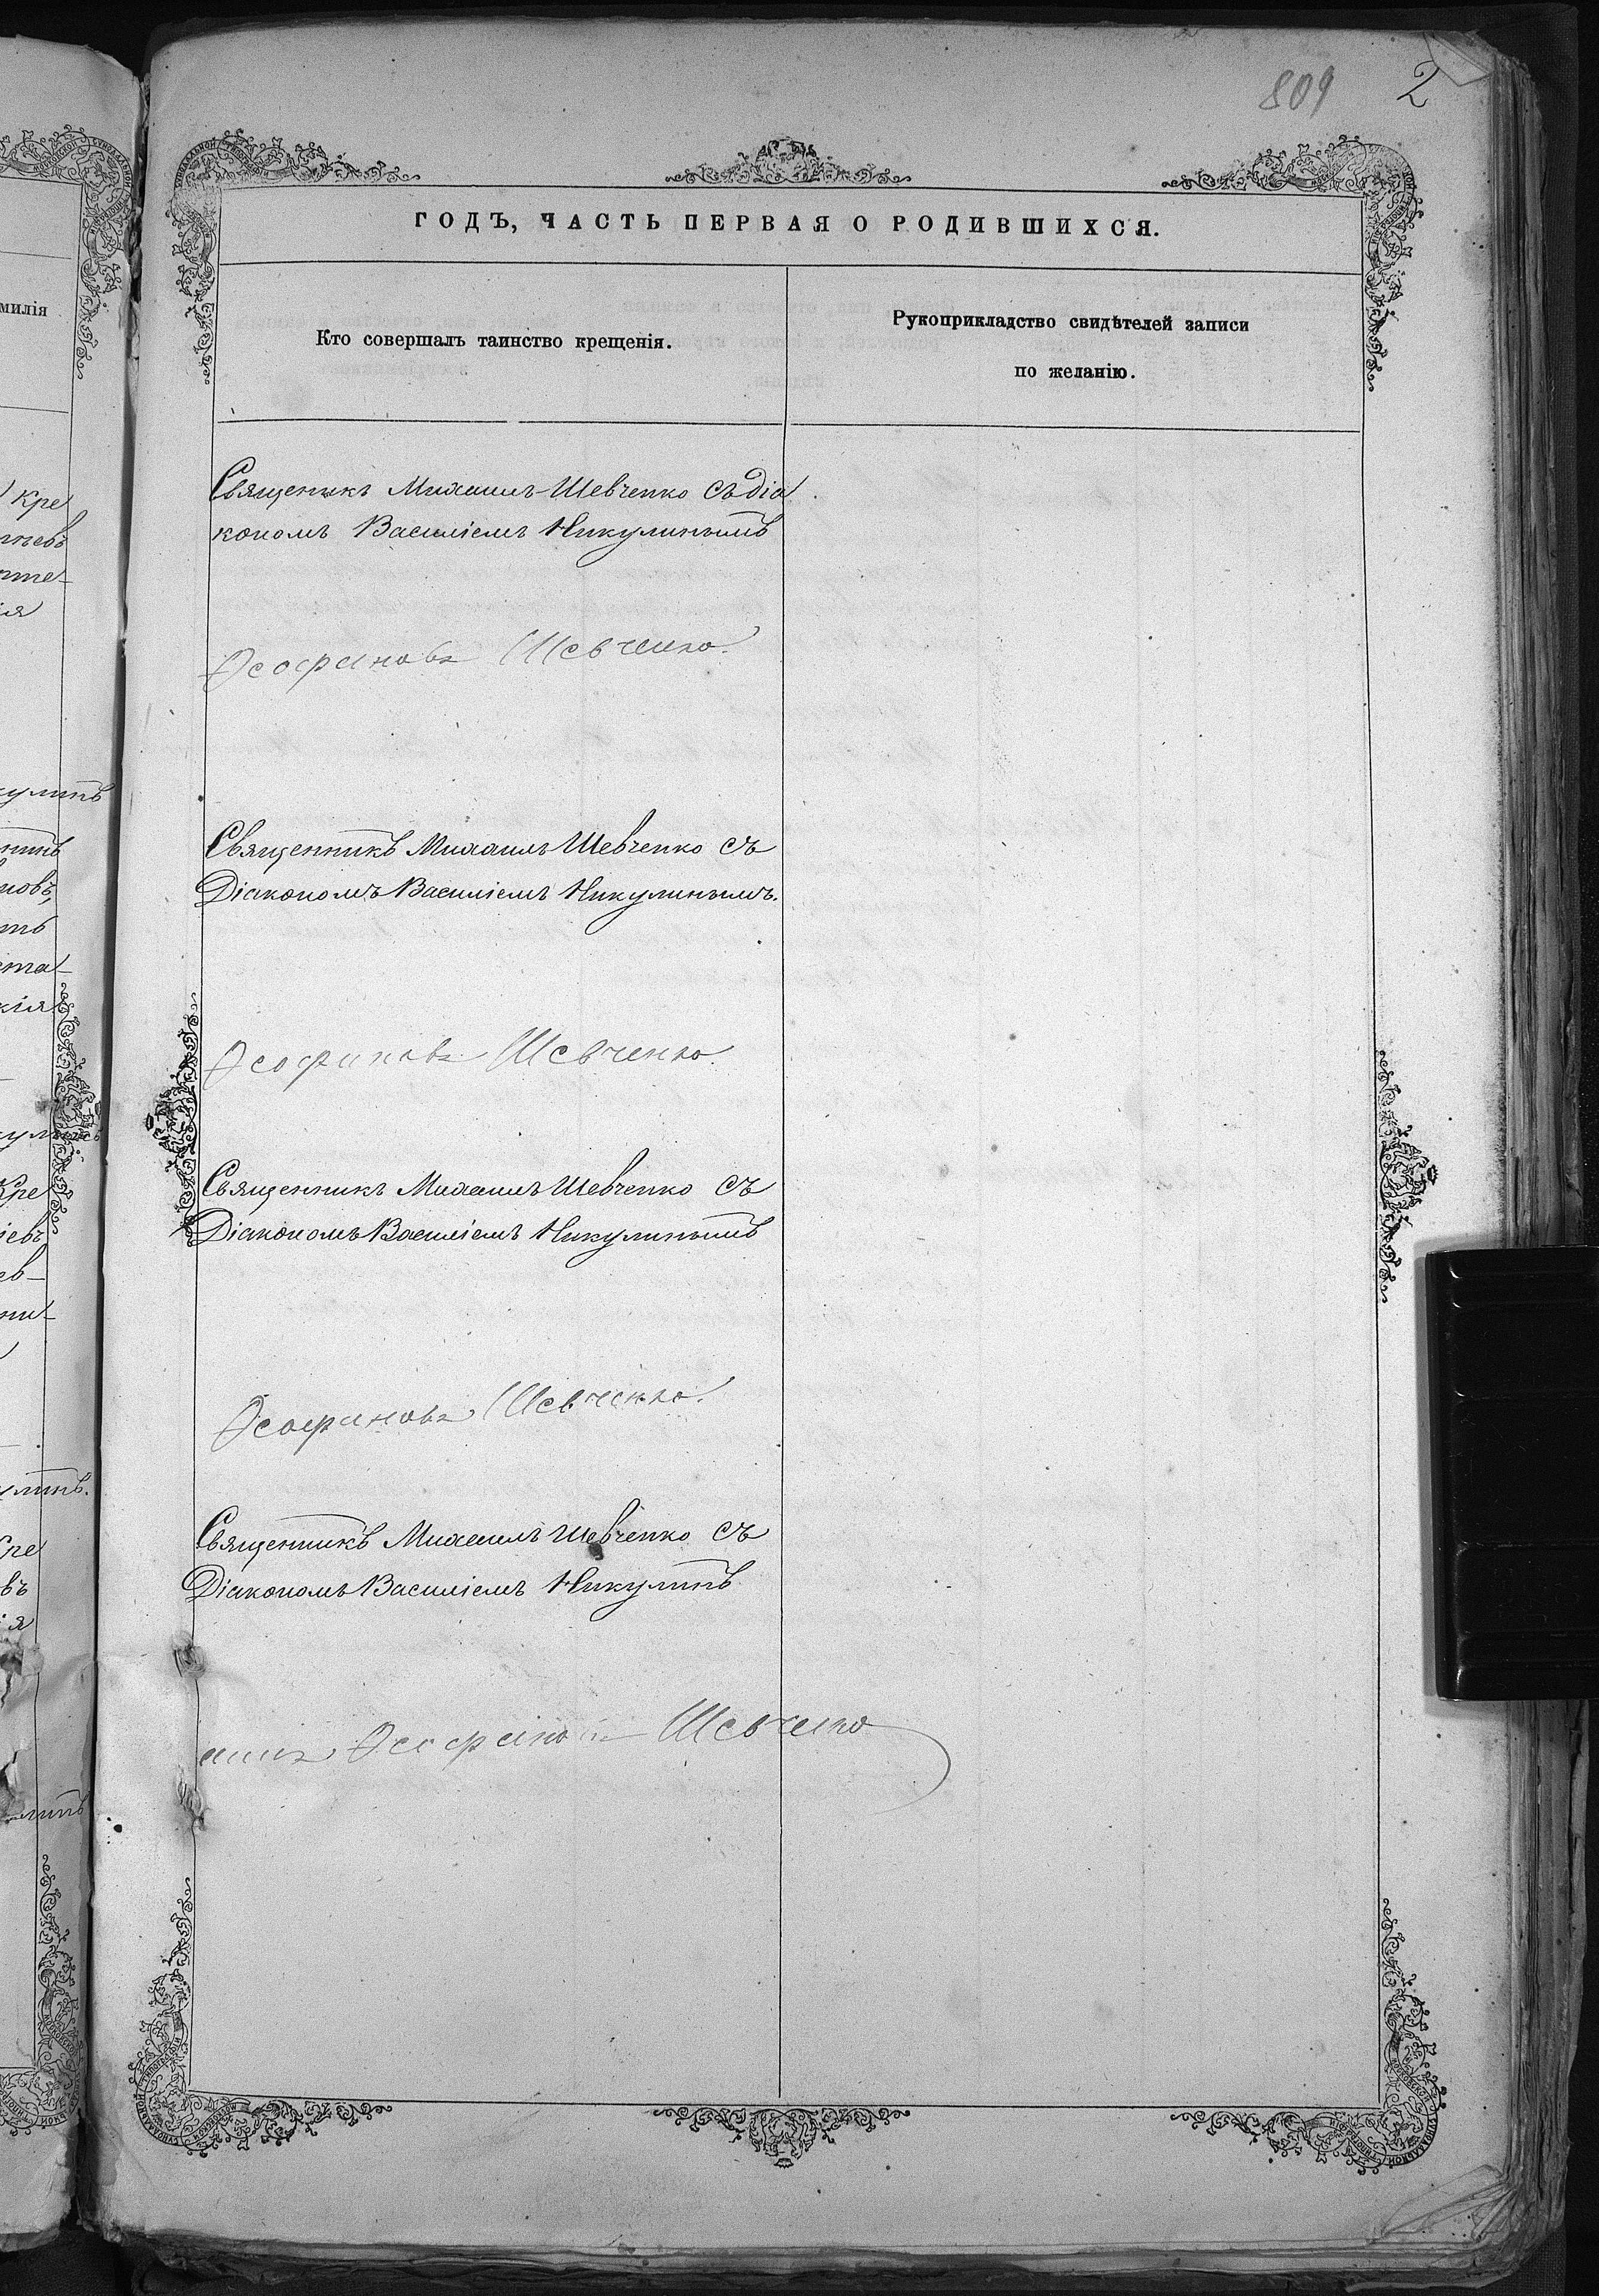 809 2
ГОДЪ, ЧАСТЬ ПЕРВАЯ О РОДИВШИХСЯ.
милія
Кто совершалъ таинство крещенія.
Рукоприкладство свидѣтелей записи
по желанію.
Священикъ Михаилъ Шевченко съ діа
кономъ Василіемъ Никулинымъ
Ѳеофановъ Шевченко.
Священникъ Михаилъ Шевченко съ
Діакономъ Василіемъ Никулинымъ.
Ѳеофановъ Шевченко
Священникъ Михаилъ Шевченко съ
Діакономъ Василіемъ Никулинымъ
Ѳеофановъ Шевченко.
Священникъ Михаилъ Шевченко съ
Діакономъ Василіемъ Никулинъ
Шевченко